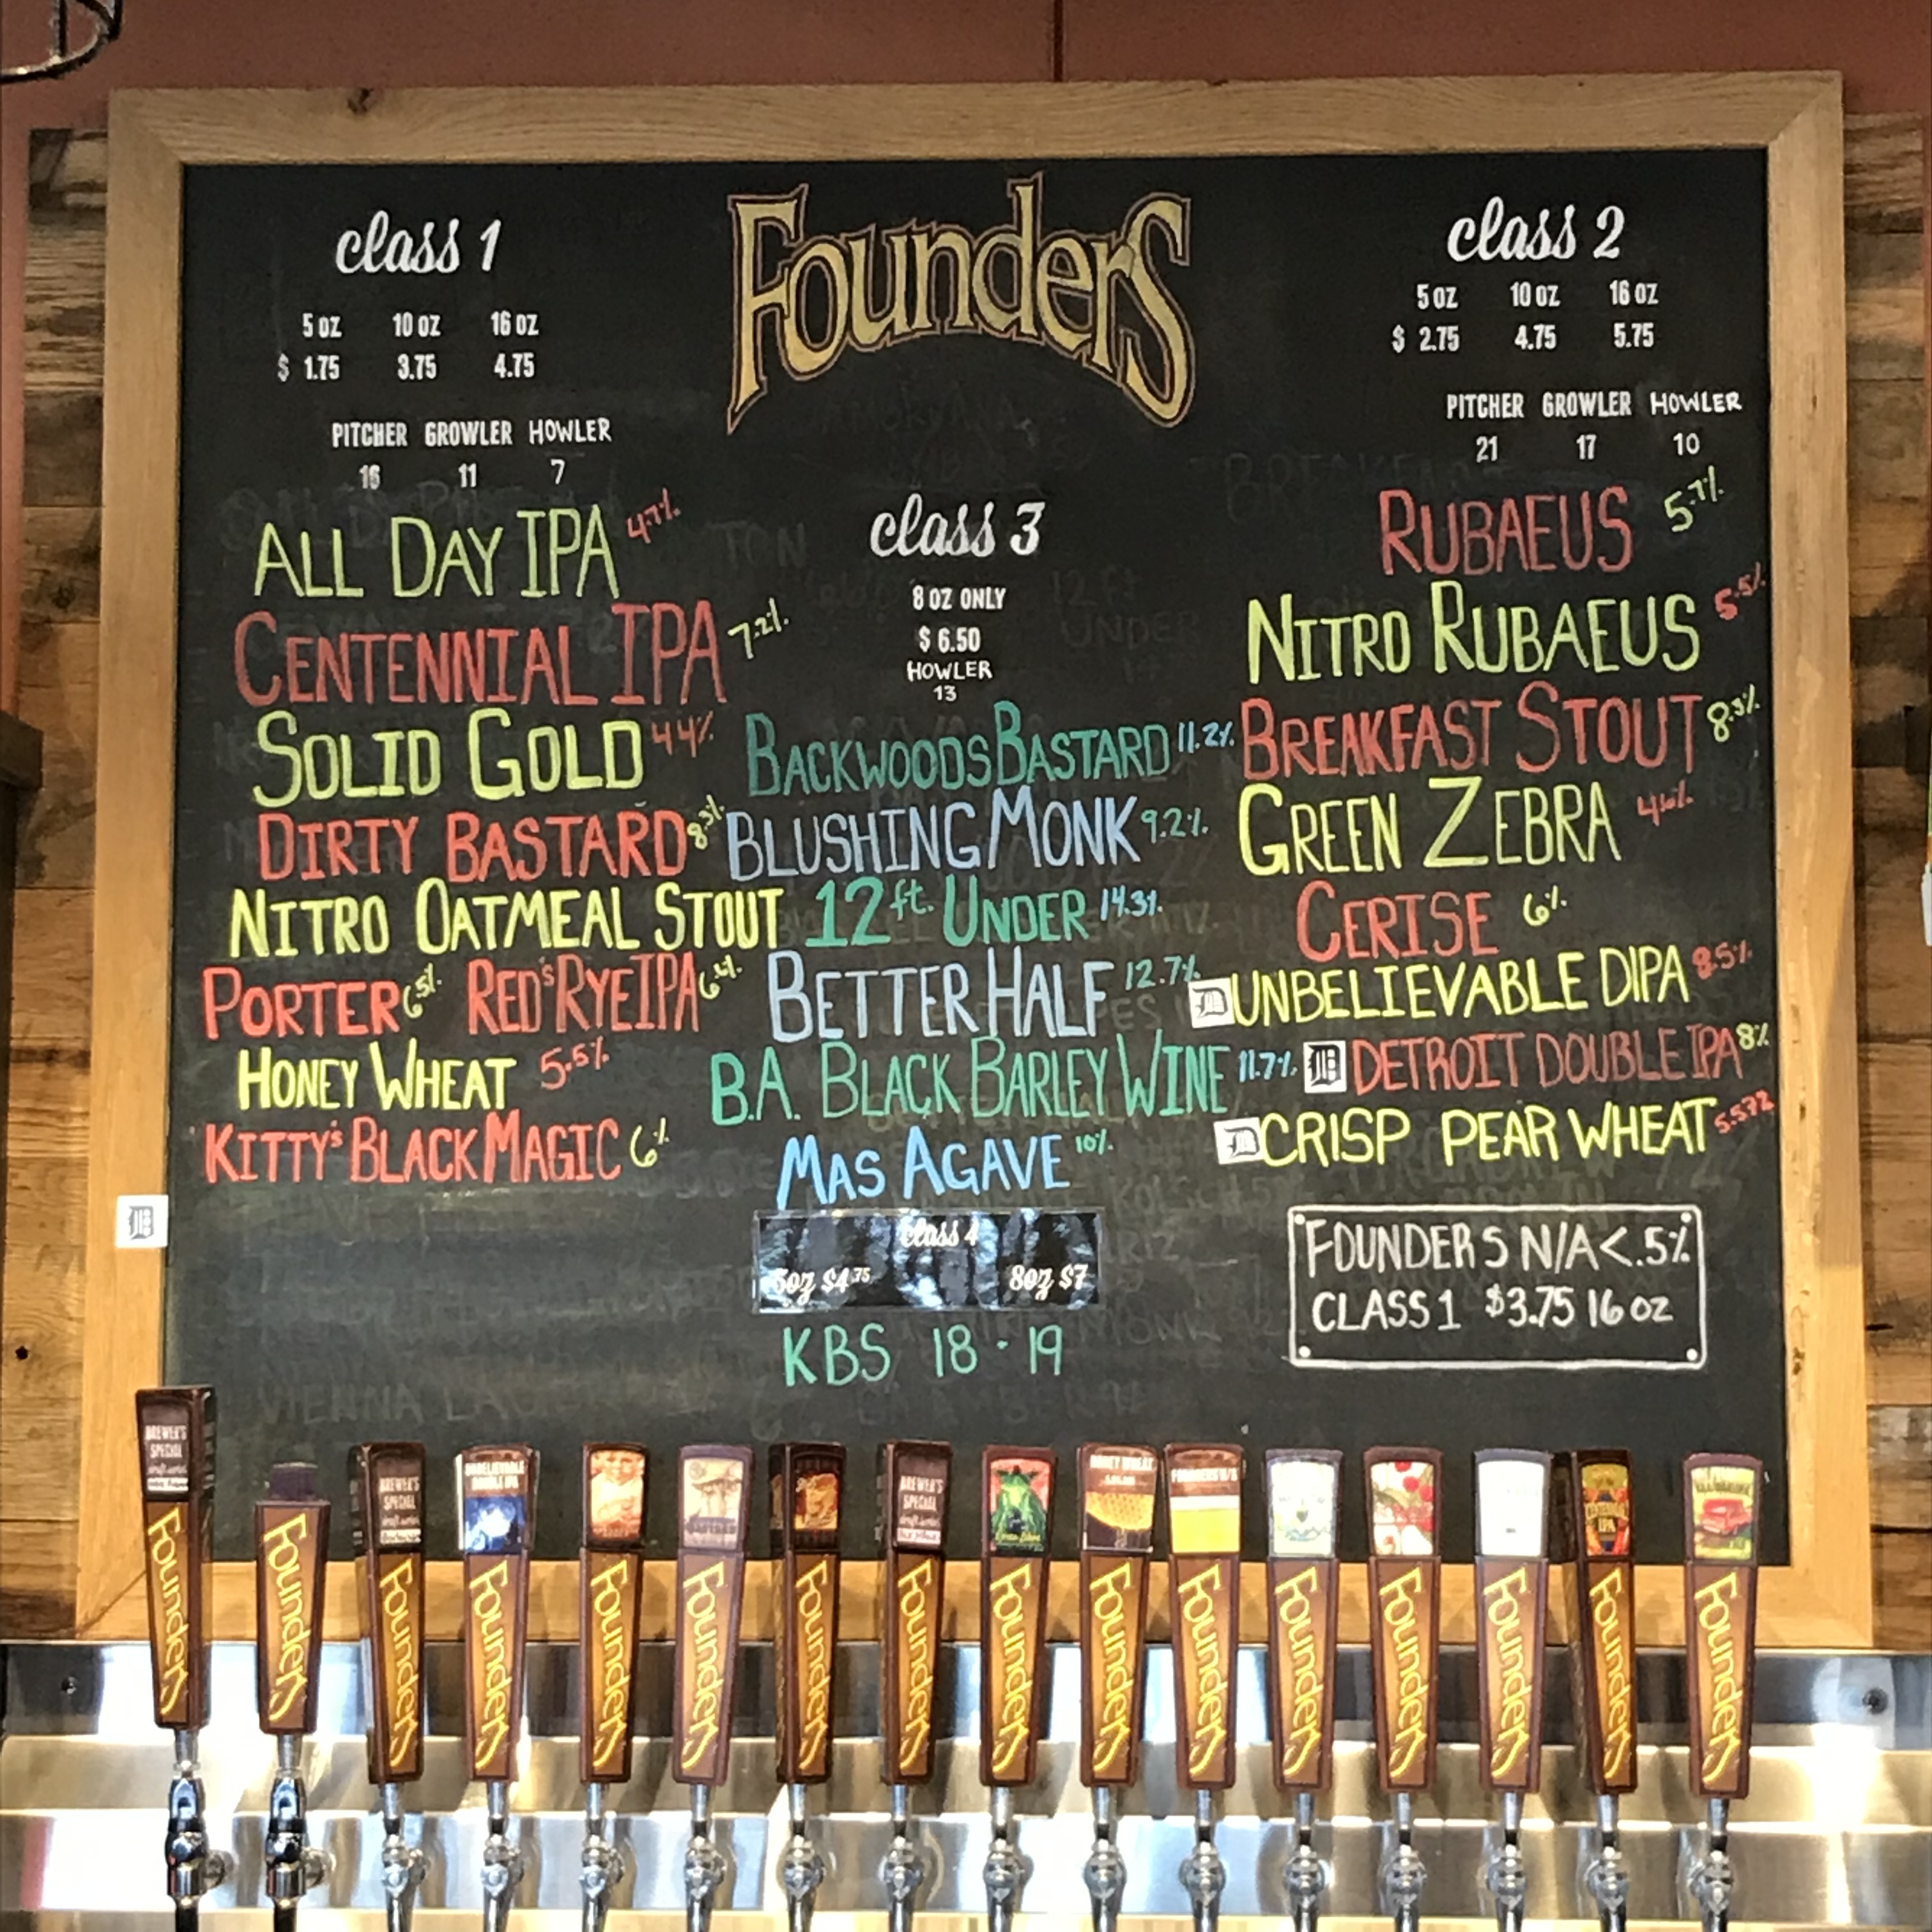 Founders
class 1
5 oz 10 oz 16 oz
$ 1.75 3.75 4.75
PITCHER GROWLER HOWLER
16 11 7
ALL DAY IPA 4.7%
CENTENNIAL IPA 7.2%
SOLID GOLD 4.4%
DIRTY BASTARD 8.3%
NITRO OATMEAL STOUT
PORTER 6.5% RED'S RYE IPA 6.6%
HONEY WHEAT 5.5%
KITTY'S BLACK MAGIC 6%
class 3
8 OZ ONLY
$ 6.50
HOWLER
13
BACKWOODS BASTARD 11.2%
BLUSHING MONK 9.2%
12 ft. UNDER 14.3%
BETTER HALF 12.7%
B.A. BLACK BARLEY WINE 11.7%
MAS AGAVE 10%
class 4
5oz $4.75 8oz $7
KBS 18 - 19
class 2
5 oz 10 oz 16 oz
$ 2.75 4.75 5.75
PITCHER GROWLER HOWLER
21 17 10
RUBAEUS 5.7%
NITRO RUBAEUS 5.5%
BREAKFAST STOUT 8.3%
GREEN ZEBRA 4.6%
CERISE 6%
UNBELIEVABLE DIPA 8.5%
DETROIT DOUBLE IPA 8%
CRISP PEAR WHEAT 5.5%
FOUNDERS N/A <.5%
CLASS 1 $3.75 16 oz
BREWER'S
SPECIAL
draft series
Founders
Founders
BREWER'S
SPECIAL
draft series
Founders
UNBELIEVABLE
DOUBLE IPA
Founders
Founders
Founders
Founders
BREWER'S
SPECIAL
draft series
Founders
Green Zebra
Founders
HONEY WHEAT
Founders
FOUNDERS N/A
Founders
Founders
Founders
Founders
CENTENNIAL
IPA
Founders
Founders